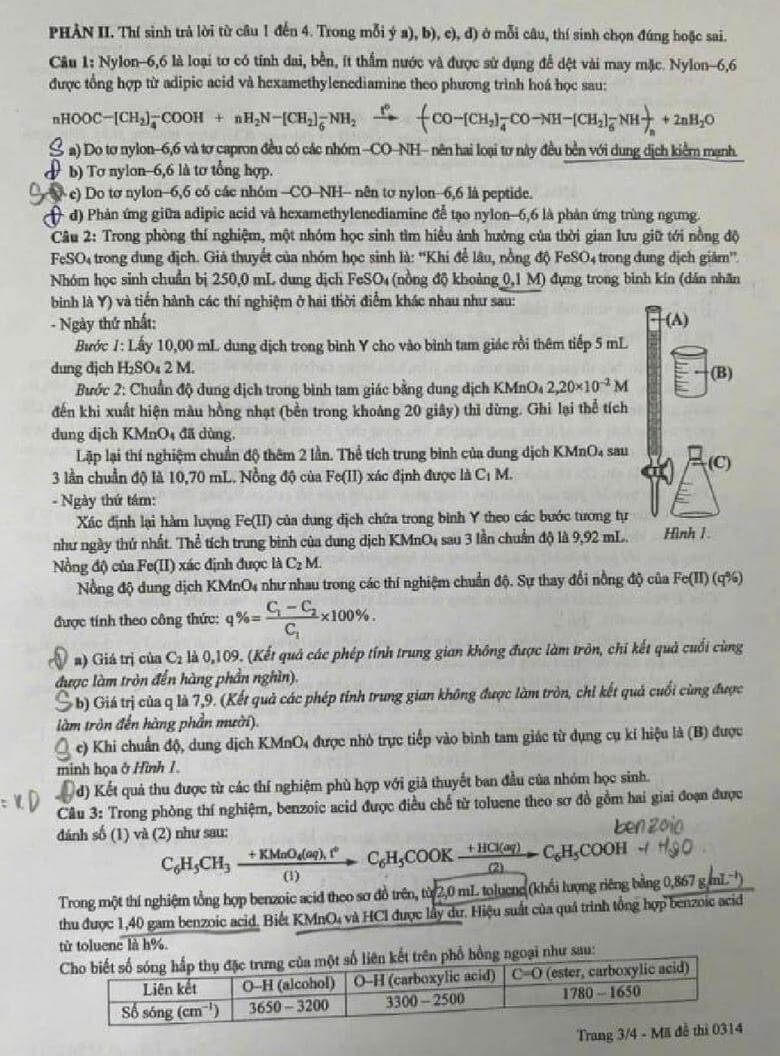 PHẦN II. Thí sinh trả lời từ câu 1 đến 4. Trong mỗi ý a), b), c), d) ở mỗi câu, thí sinh chọn đúng hoặc sai.
Câu 1: Nylon–6,6 là loại tơ có tính dai, bền, ít thấm nước và được sử dụng để dệt vải may mặc. Nylon–6,6
được tổng hợp từ adipic acid và hexamethylenediamine theo phương trình hoá học sau:
nHOOC–[CH₂]₄–COOH + nH₂N–[CH₂]₆–NH₂ —t°→ (CO–[CH₂]₄–CO–NH–[CH₂]₆–NH)ₙ + 2nH₂O
S a) Do tơ nylon–6,6 và tơ capron đều có các nhóm –CO–NH– nên hai loại tơ này đều bền với dung dịch kiềm mạnh.
Đ b) Tơ nylon–6,6 là tơ tổng hợp.
S c) Do tơ nylon–6,6 có các nhóm –CO–NH– nên tơ nylon–6,6 là peptide.
Đ d) Phản ứng giữa adipic acid và hexamethylenediamine để tạo nylon–6,6 là phản ứng trùng ngưng.
Câu 2: Trong phòng thí nghiệm, một nhóm học sinh tìm hiểu ảnh hưởng của thời gian lưu giữ tới nồng độ
FeSO₄ trong dung dịch. Giả thuyết của nhóm học sinh là: “Khi để lâu, nồng độ FeSO₄ trong dung dịch giảm”.
Nhóm học sinh chuẩn bị 250,0 mL dung dịch FeSO₄ (nồng độ khoảng 0,1 M) đựng trong bình kín (dán nhãn
bình là Y) và tiến hành các thí nghiệm ở hai thời điểm khác nhau như sau:
- Ngày thứ nhất:
Bước 1: Lấy 10,00 mL dung dịch trong bình Y cho vào bình tam giác rồi thêm tiếp 5 mL
dung dịch H₂SO₄ 2 M.
Bước 2: Chuẩn độ dung dịch trong bình tam giác bằng dung dịch KMnO₄ 2,20×10⁻² M
đến khi xuất hiện màu hồng nhạt (bền trong khoảng 20 giây) thì dừng. Ghi lại thể tích
dung dịch KMnO₄ đã dùng.
Lặp lại thí nghiệm chuẩn độ thêm 2 lần. Thể tích trung bình của dung dịch KMnO₄ sau
3 lần chuẩn độ là 10,70 mL. Nồng độ của Fe(II) xác định được là C₁ M.
- Ngày thứ tám:
Xác định lại hàm lượng Fe(II) của dung dịch chứa trong bình Y theo các bước tương tự
như ngày thứ nhất. Thể tích trung bình của dung dịch KMnO₄ sau 3 lần chuẩn độ là 9,92 mL.
Nồng độ của Fe(II) xác định được là C₂ M.
(A)
(B)
(C)
Hình 1.
Nồng độ dung dịch KMnO₄ như nhau trong các thí nghiệm chuẩn độ. Sự thay đổi nồng độ của Fe(II) (q%)
được tính theo công thức: q% = (C₁ − C₂)/C₁ ×100%.
Đ a) Giá trị của C₂ là 0,109. (Kết quả các phép tính trung gian không được làm tròn, chỉ kết quả cuối cùng
được làm tròn đến hàng phần nghìn).
S b) Giá trị của q là 7,9. (Kết quả các phép tính trung gian không được làm tròn, chỉ kết quả cuối cùng được
làm tròn đến hàng phần mười).
S c) Khi chuẩn độ, dung dịch KMnO₄ được nhỏ trực tiếp vào bình tam giác từ dụng cụ kí hiệu là (B) được
minh họa ở Hình 1.
Đ d) Kết quả thu được từ các thí nghiệm phù hợp với giả thuyết ban đầu của nhóm học sinh.
Câu 3: Trong phòng thí nghiệm, benzoic acid được điều chế từ toluene theo sơ đồ gồm hai giai đoạn được
đánh số (1) và (2) như sau:
benzoic
C₆H₅CH₃ —+ KMnO₄(aq), t° (1)→ C₆H₅COOK —+ HCl(aq) (2)→ C₆H₅COOH + H₂O
Trong một thí nghiệm tổng hợp benzoic acid theo sơ đồ trên, từ 2,0 mL toluene (khối lượng riêng bằng 0,867 g mL⁻¹)
thu được 1,40 gam benzoic acid. Biết KMnO₄ và HCl được lấy dư. Hiệu suất của quá trình tổng hợp benzoic acid
từ toluene là h%.
Cho biết số sóng hấp thụ đặc trưng của một số liên kết trên phổ hồng ngoại như sau:
Liên kết O–H (alcohol) O–H (carboxylic acid) C=O (ester, carboxylic acid)
Số sóng (cm⁻¹) 3650 – 3200 3300 – 2500 1780 – 1650
Trang 3/4 - Mã đề thi 0314